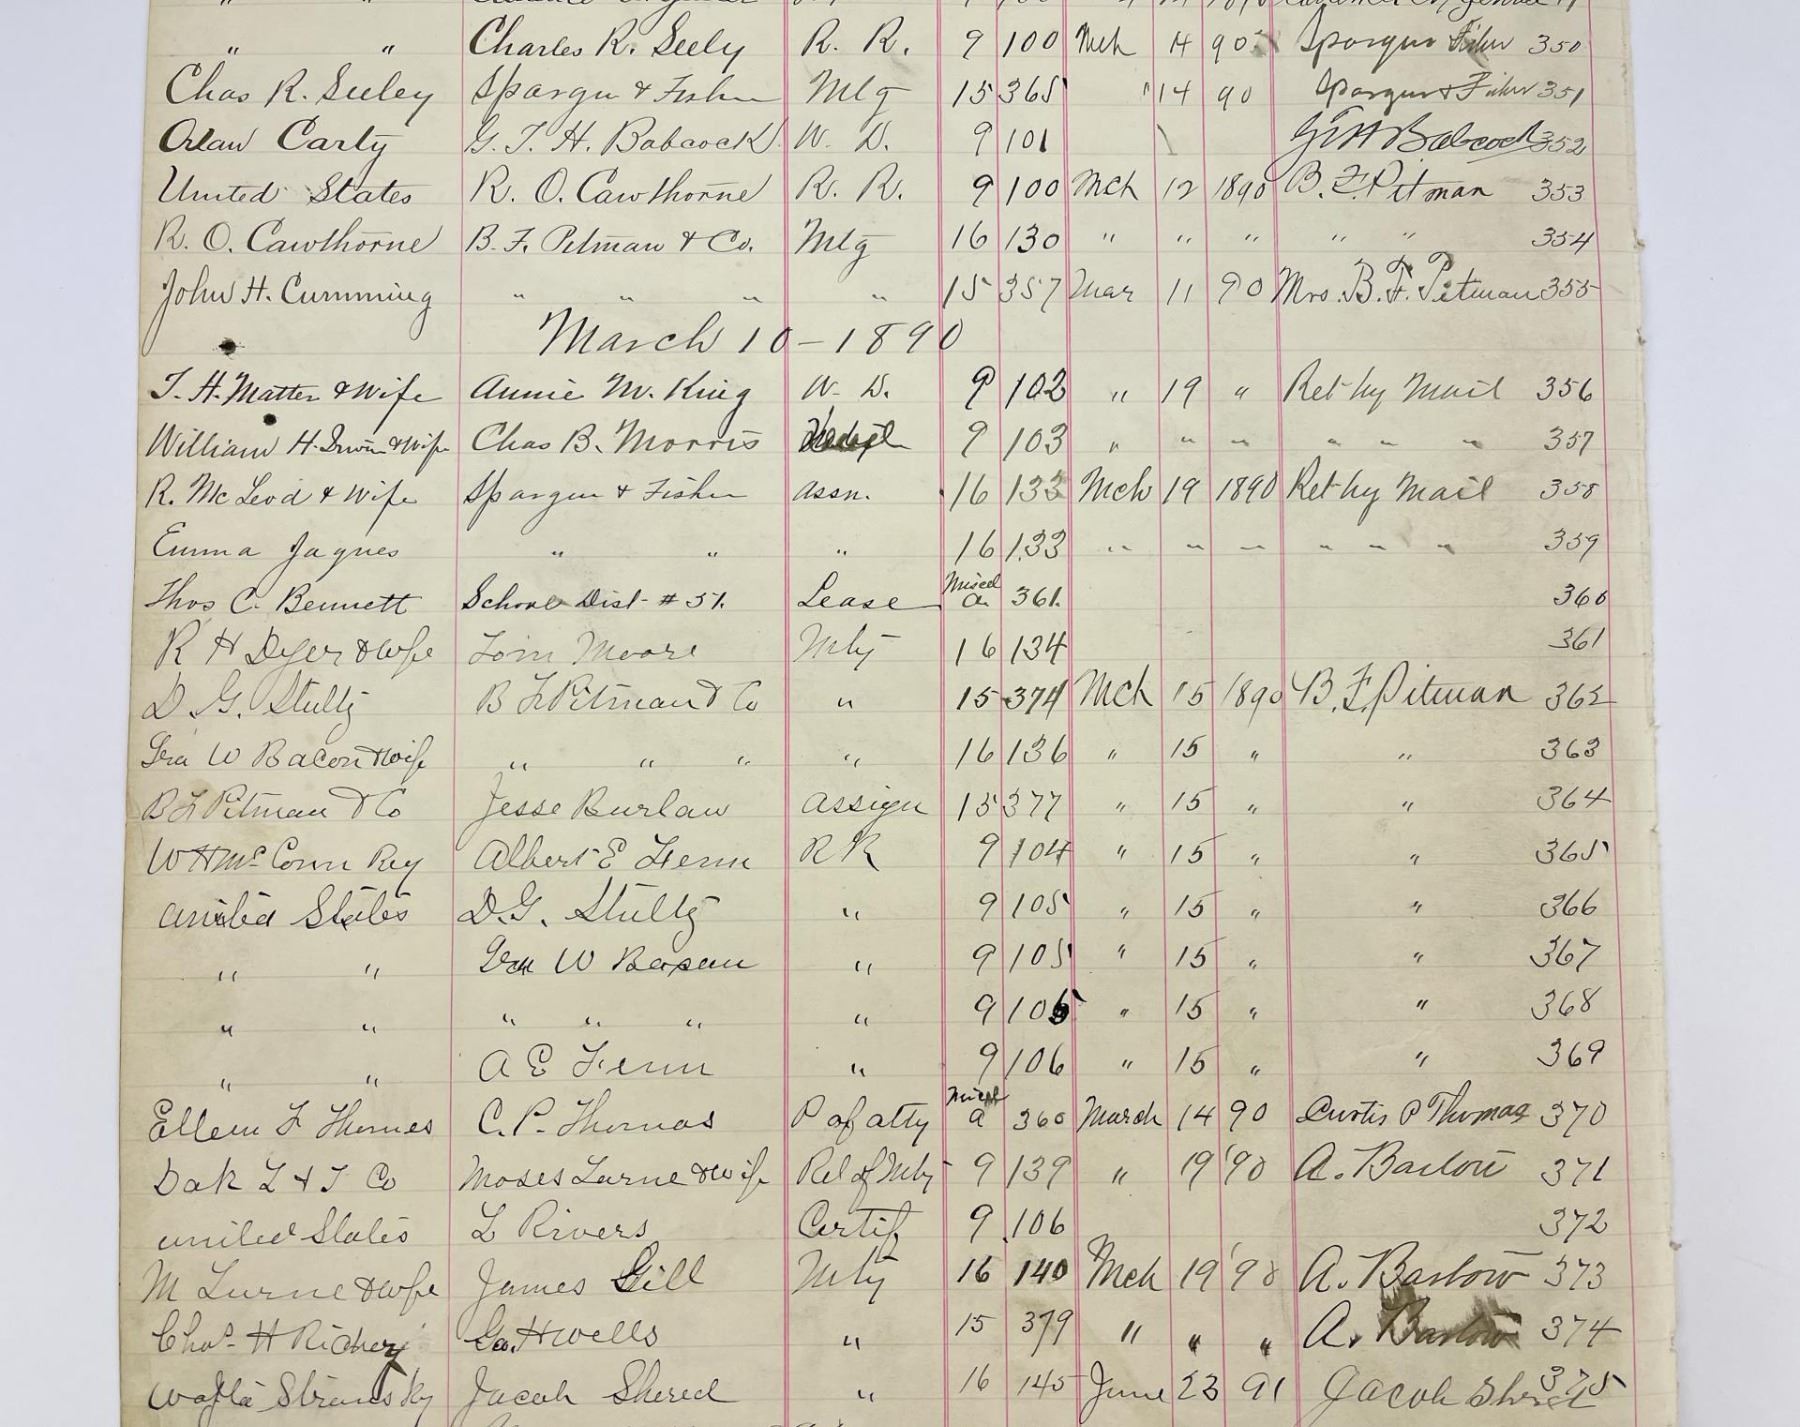 " " Charles R. Seely R. R. 9 100 Mch 14 90 Spargur Fisher 350
Chas R. Seeley Spargur & Fisher Mtg 15 365 " 14 90 Spargur & Fisher 351
Olaw Carty G. T. H. Babcock W. D. 9 101 GTH Babcock 352
United States R. O. Cawthorne R. R. 9 100 Mch 12 1890 B. F. Pitman 353
R. O. Cawthorne B. F. Pitman & Co. Mtg 16 130 " " " " " 354
John H. Cumming " " " " 15 357 Mar 11 90 Mrs. B. F. Pitman 355
March 10 - 1890
T. H. Matter & Wife Annie M. King W. D. 9 102 " 19 " Ret by Mail 356
William H. Irwin & Wife Chas B. Morris 9 103 " " " " " " 357
R. McLeod & Wife Spargur & Fisher assn. 16 133 Mch 19 1890 Ret by Mail 358
Emma Jaques " " " 16 133 " " " " " " 359
Thos C. Bennett School Dist # 51. Lease Miscel a. 361. 360
R H Dyer & Wife Tom Moore Mtg 16 134 361
D. G. Stultz B F Pitman & Co " 15 374 Mch 15 1890 B. F. Pitman 362
Ira W Bacon & Wife " " " " 16 136 " 15 " " 363
B F Pitman & Co Jesse Burlaw Assign 15 377 " 15 " " 364
W H McConn Rey Albert E Fenn R R 9 104 " 15 " " 365
United States D. G. Stultz " 9 105 " 15 " " 366
" " Ira W Bacon " 9 105 " 15 " " 367
" " " " " " 9 105 " 15 " " 368
" " A E Fenn " 9 106 " 15 " " 369
Ellen F Thomas C. P. Thomas P of atty a 360 March 14 90 Curtis P Thomas 370
Dak L & T Co Moses Turne & Wife Rel of Mtg 9 139 " 19 '90 A. Barlow 371
United States L Rivers Certif 9 106 372
M Turne & Wife James Gill Mtg 16 140 Mch 19 '90 A. Barlow 373
Chas. H Richey Geo. H Wells " 15 379 " " " A. Barlow 374
Stransky Jacob Shered " 16 145 June 23 91 Jacob Shered 375